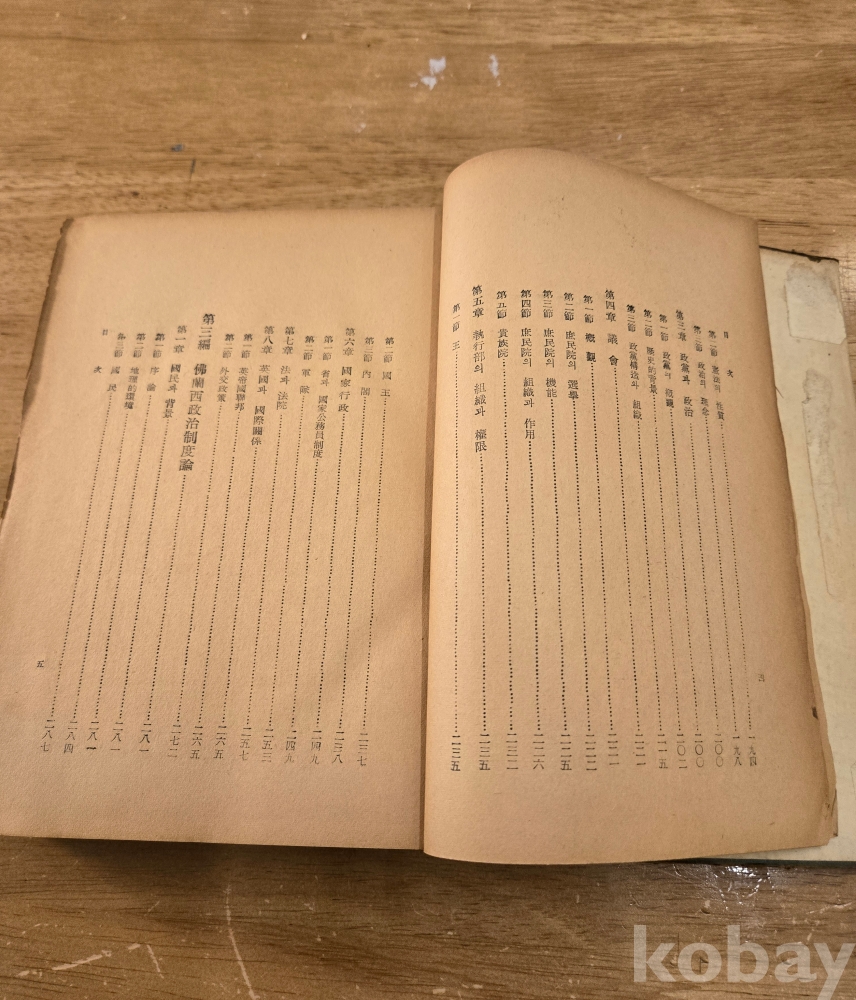 目次
第一節 憲法의 性質 一九四
第二節 政治의 理念 一九八
第三章 政黨과 政治 二〇〇
第一節 政黨의 槪觀 二〇〇
第二節 歷史的背景 二〇二
第三節 政黨構造의 組織 二一五
第四章 議會 二二一
第一節 槪觀 二二一
第二節 庶民院의 選擧 二二二
第三節 庶民院의 機能 二二五
第四節 庶民院의 組織과 作用 二二六
第五節 貴族院 二三二
第五章 執行部의 組織과 權限 二三五
第一節 王 二三五
四
第二節 國王 二三七
第三節 內閣 二三八
第六章 國家行政 二四九
第一節 省과 國家公務員制度 二四九
第二節 軍隊 二五三
第七章 法과 法院 二五七
第八章 英國과 國際關係 二六五
第一節 英帝國聯邦 二六五
第二節 外交政策 二七二
第三編 佛蘭西政治制度論 二八一
第一章 國民과 背景 二八一
第一節 序論 二八一
第二節 地理的環境 二八四
第三節 國民 二八七
目次
五
kobay